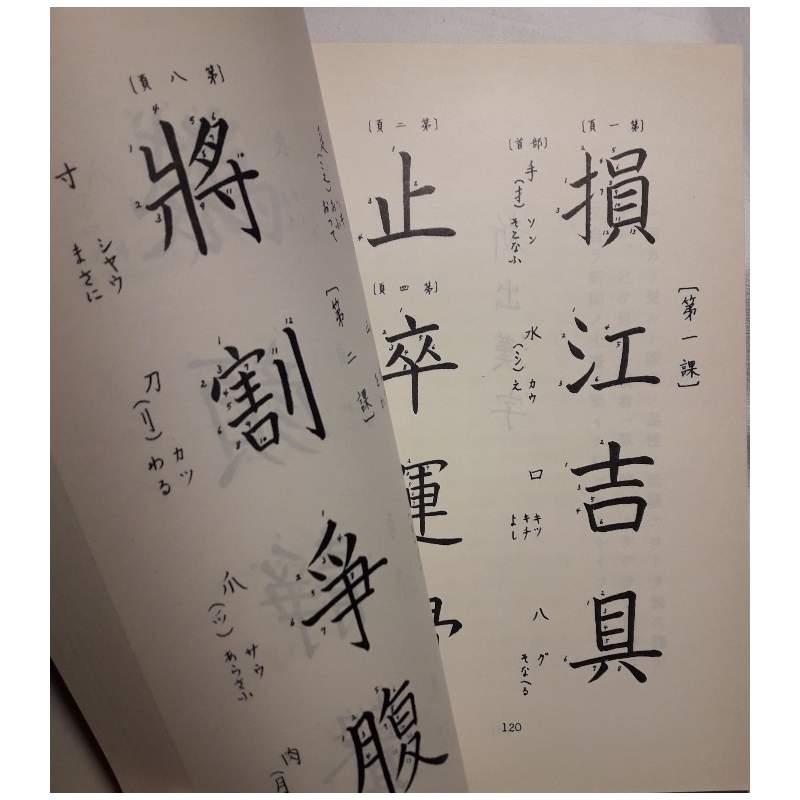 〔第一課〕
〔第一頁〕
損
江
吉
具
〔部首〕
手(扌) ソン そこなふ
水(氵) カウ え
口 キツ キチ よし
八 グ そなへる
〔第二頁〕
止
〔第四頁〕
卒
運
120
〔第二課〕
〔第八頁〕
將
割
爭
腹
寸 シヤウ まさに
刀(刂) カツ わる
爪(爫) サウ あらそふ
肉(月